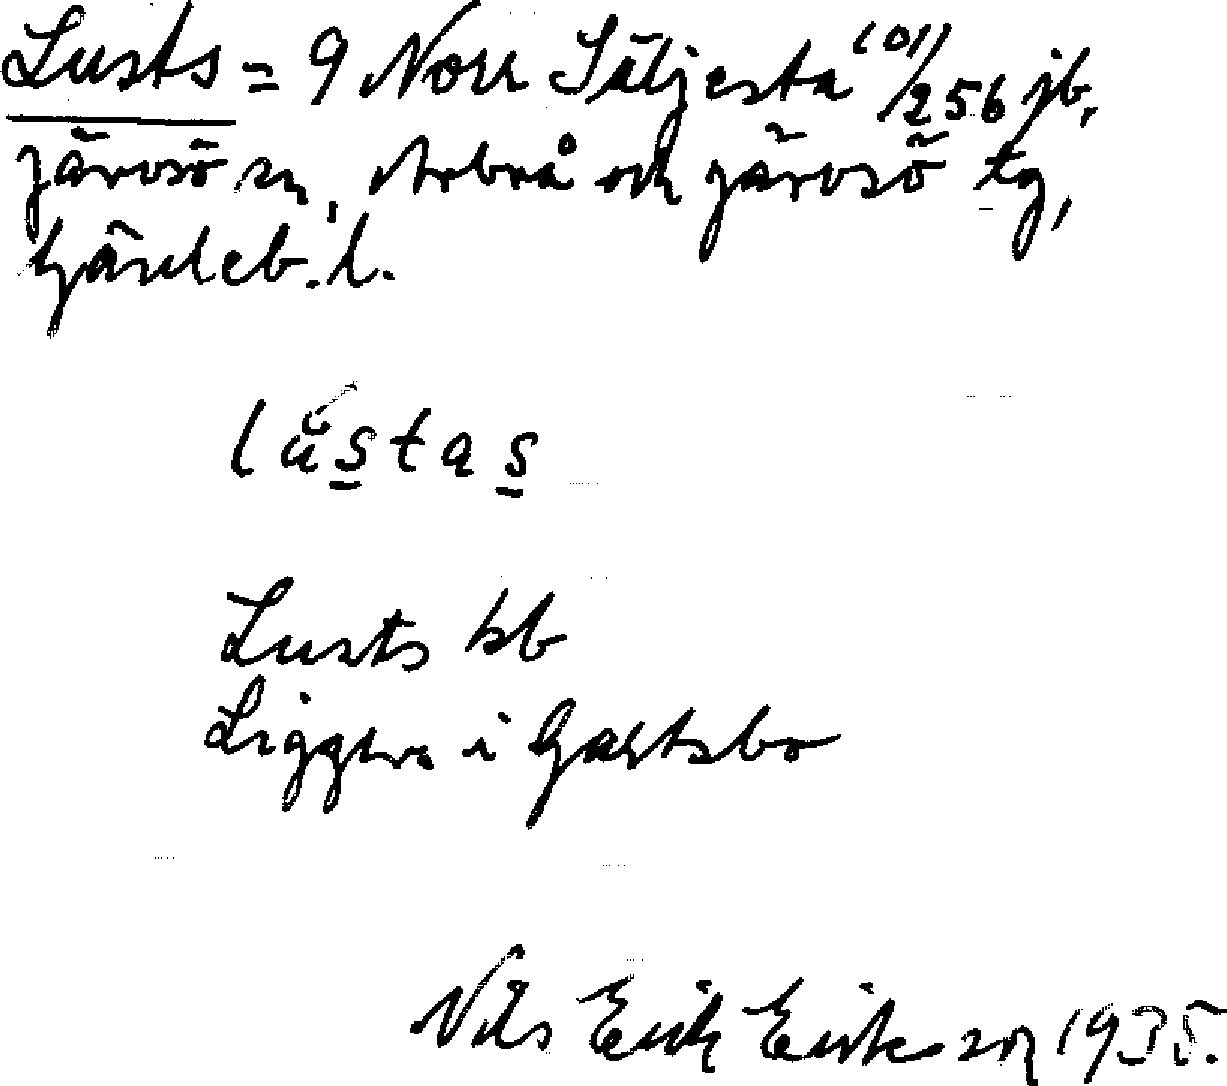 Lusts = 9 Norr Säljesta (01)/256 jb,
Järvsö sn, Arbrå och Järvsö tg,
Gävleb. l.
lŭstas
Lusts kb
Ligger i Gastsbo
Nils Erik Eriksson 1935.